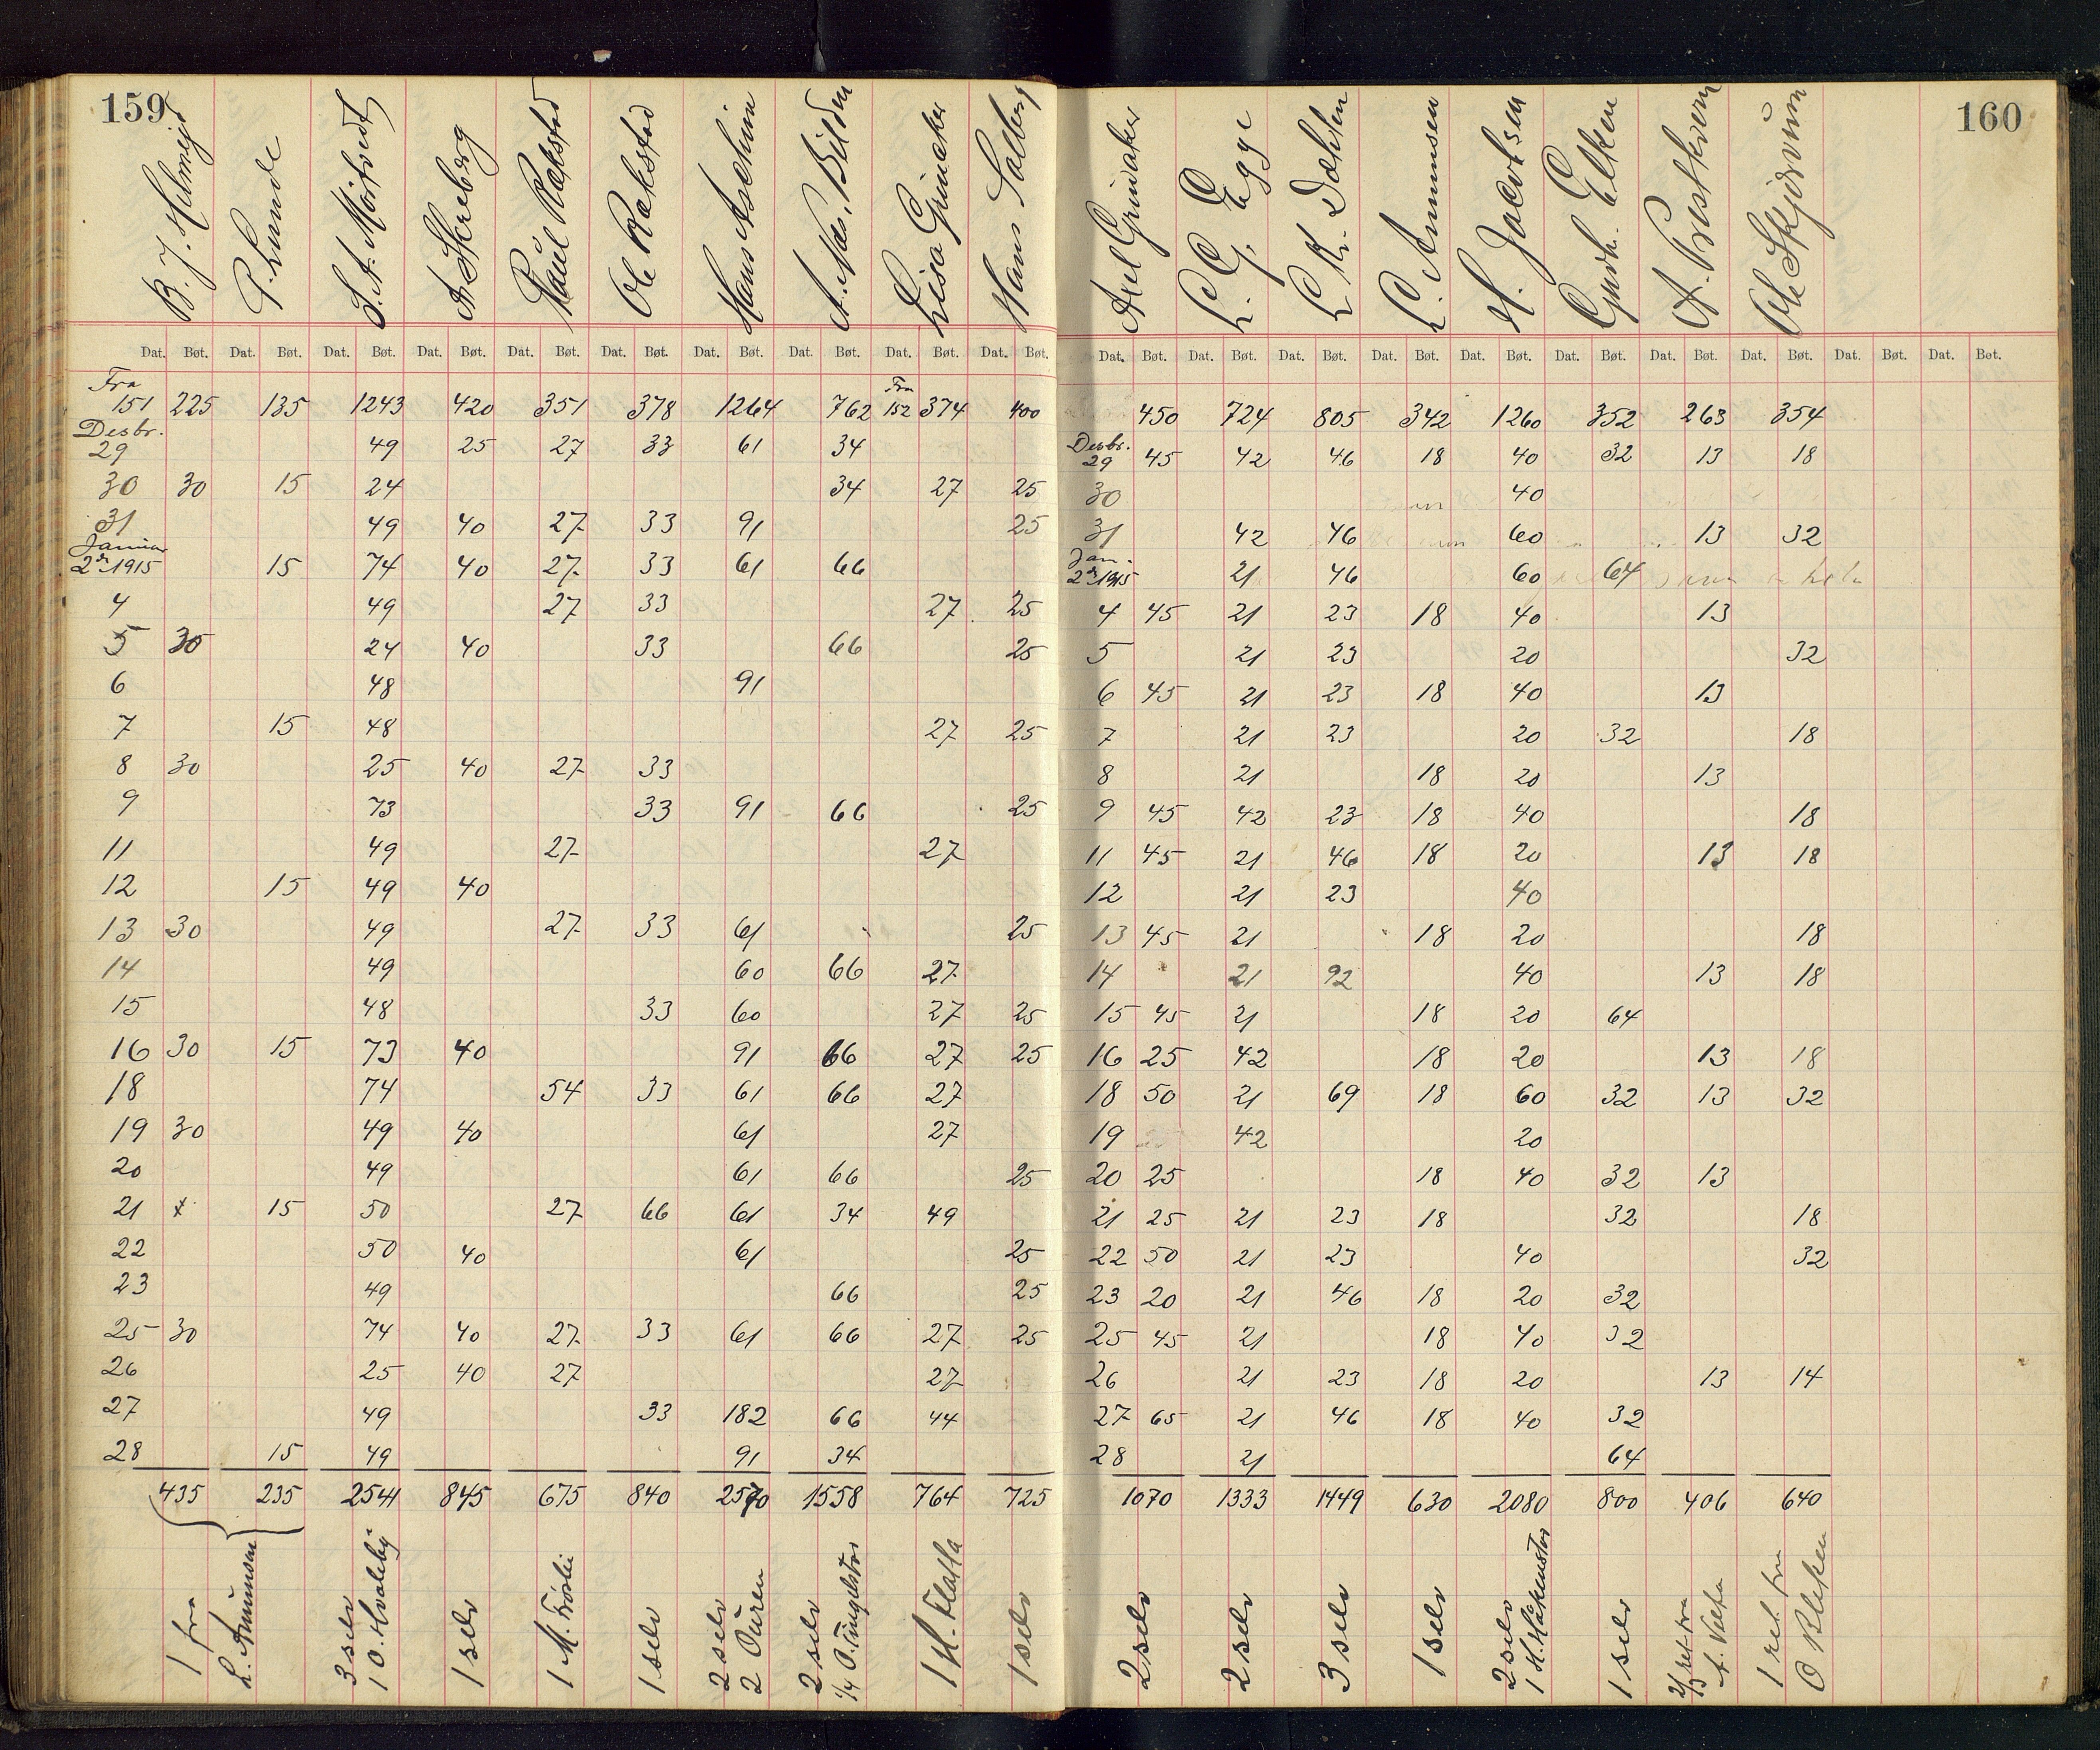 159
B. J. Helmeid P. Lunde S. A. Mørtvedt A. Skreberg Paul Rækstad Ole Rækstad Hans Aschim A. Næs, Bilden Lisa Grinaker Hans Solberg
Dat. Bøt. Dat. Bøt. Dat. Bøt. Dat. Bøt. Dat. Bøt. Dat. Bøt. Dat. Bøt. Dat. Bøt. Dat. Bøt. Dat. Bøt.
Fra Fra
151 225 135 1243 420 351 378 1264 762 152 374 400
Desbr.
29 49 25 27 33 61 34
30 30 15 24 34 27 25
31 49 40 27 33 91 25
Januar
2dr 1915 15 74 40 27 33 61 66
4 49 27 33 27 25
5 30 24 40 33 66 25
6 48 91
7 15 48 27 25
8 30 25 40 27 33
9 73 33 91 66 25
11 49 27 27
12 15 49 40
13 30 49 27 33 61 25
14 49 60 66 27
15 48 33 60 27 25
16 30 15 73 40 91 66 27 25
18 74 54 33 61 66 27
19 30 49 40 61 27
20 49 61 66 25
21 x 15 50 27 66 61 34 49
22 50 40 61 25
23 49 66 25
25 30 74 40 27 33 61 66 27 25
26 25 40 27 27
27 49 33 182 66 44
28 15 49 91 34
435 235 2541 845 675 840 2570 1558 764 725
1 fra
L. Amundsen
3 selv
1 O. Hvaleby
1 selv
1 M. Frøslie
1 selv
2 selv
2 Buren
2 selv
1/4 O. Tingelstad
1 H. Flatla
1 selv
160
Axel Grinaker L. G. Egge L. K. Dæhlen L. Amundsen H. Jacobsen Gudh. Elken A. Prestkvern Ole Skjervum
Dat. Bøt. Dat. Bøt. Dat. Bøt. Dat. Bøt. Dat. Bøt. Dat. Bøt. Dat. Bøt. Dat. Bøt. Dat. Bøt. Dat. Bøt.
450 724 805 342 1260 352 263 354
Desbr.
29 45 42 46 18 40 32 13 18
30 40
31 42 46 60 13 32
Jan.
2dr 1915 21 46 60 64
4 45 21 23 18 40 13
5 21 23 20 32
6 45 21 23 18 40 13
7 21 23 20 32 18
8 21 18 20 13
9 45 42 23 18 40 18
11 45 21 46 18 20 13 18
12 21 23 40
13 45 21 18 20 18
14 21 92 40 13 18
15 45 21 18 20 64
16 25 42 18 20 13 18
18 50 21 69 18 60 32 13 32
19 42 20
20 25 18 40 32 13
21 25 21 23 18 32 18
22 50 21 23 40 32
23 20 21 46 18 20 32
25 45 21 18 40 32
26 21 23 18 20 13 14
27 65 21 46 18 40 32
28 21 64
1070 1333 1449 630 2080 800 406 640
2 selv
2 selv
3 selv
1 selv
2 selv
1 H. Håkenstad
1 selv
2/3 ret fra
A. Velta
1 ret fra
O Bleken